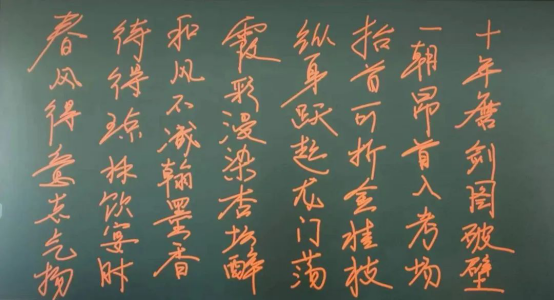 十年磨剑图破壁
一朝昂首入考场
抬首可折金桂枝
纵身跃起龙门荡
霞彩漫染杏坛醉
和风不减翰墨香
待得琼林饮宴时
春风得意志气扬